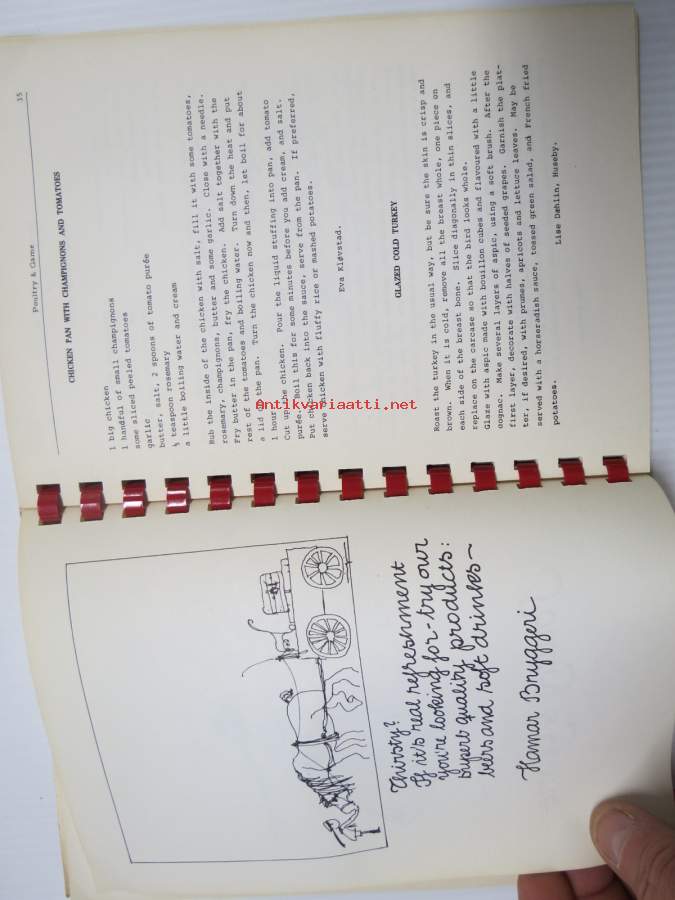 Poultry & Game
35
CHICKEN PAN WITH CHAMPIGNONS AND TOMATOES
1 big chicken
1 handful of small champignons
some sliced peeled tomatoes
garlic
butter, salt, 2 spoons of tomato purée
½ teaspoon rosemary
a little boiling water and cream
Rub the inside of the chicken with salt, fill it with some tomatoes,
rosemary, champignons, butter and some garlic. Close with a needle.
Fry butter in the pan, fry the chicken. Add salt together with the
rest of the tomatoes and boiling water. Turn down the heat and put
a lid on the pan. Turn the chicken now and then, let boil for about
1 hour.
Cut up the chicken. Pour the liquid stuffing into pan, add tomato
purée. Boil this for some minutes before you add cream, and salt.
Put chicken back into the sauce, serve from the pan. If preferred,
serve chicken with fluffy rice or mashed potatoes.
Eva Kløvstad.
GLAZED COLD TURKEY
Roast the turkey in the usual way, but be sure the skin is crisp and
brown. When it is cold, remove all the breast whole, one piece on
each side of the breast bone. Slice diagonally in thin slices, and
replace on the carcase so that the bird looks whole.
Glaze with aspic made with bouillon cubes and flavoured with a little
cognac. Make several layers of aspic, using a soft brush. After the
first layer, decorate with halves of seeded grapes. Garnish the plat-
ter, if desired, with prunes, apricots and lettuce leaves. May be
served with a horseradish sauce, tossed green salad, and French fried
potatoes.
Lise Dæhlin, Huseby.
Thirsty?
If it's real refreshment
you're looking for - try our
superb quality products:
beers and soft drinks~
Hamar Bryggeri
Antikvariaatti.net